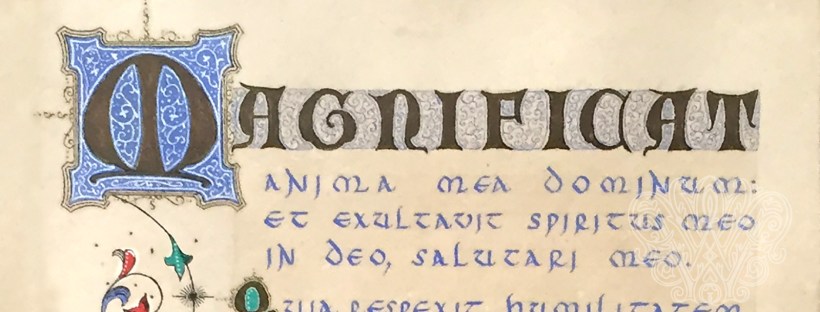 MAGNIFICAT
ANIMA MEA DOMINUM:
ET EXULTAVIT SPIRITUS MEO
IN DEO, SALUTARI MEO.
QUIA RESPEXIT HUMILITATEM